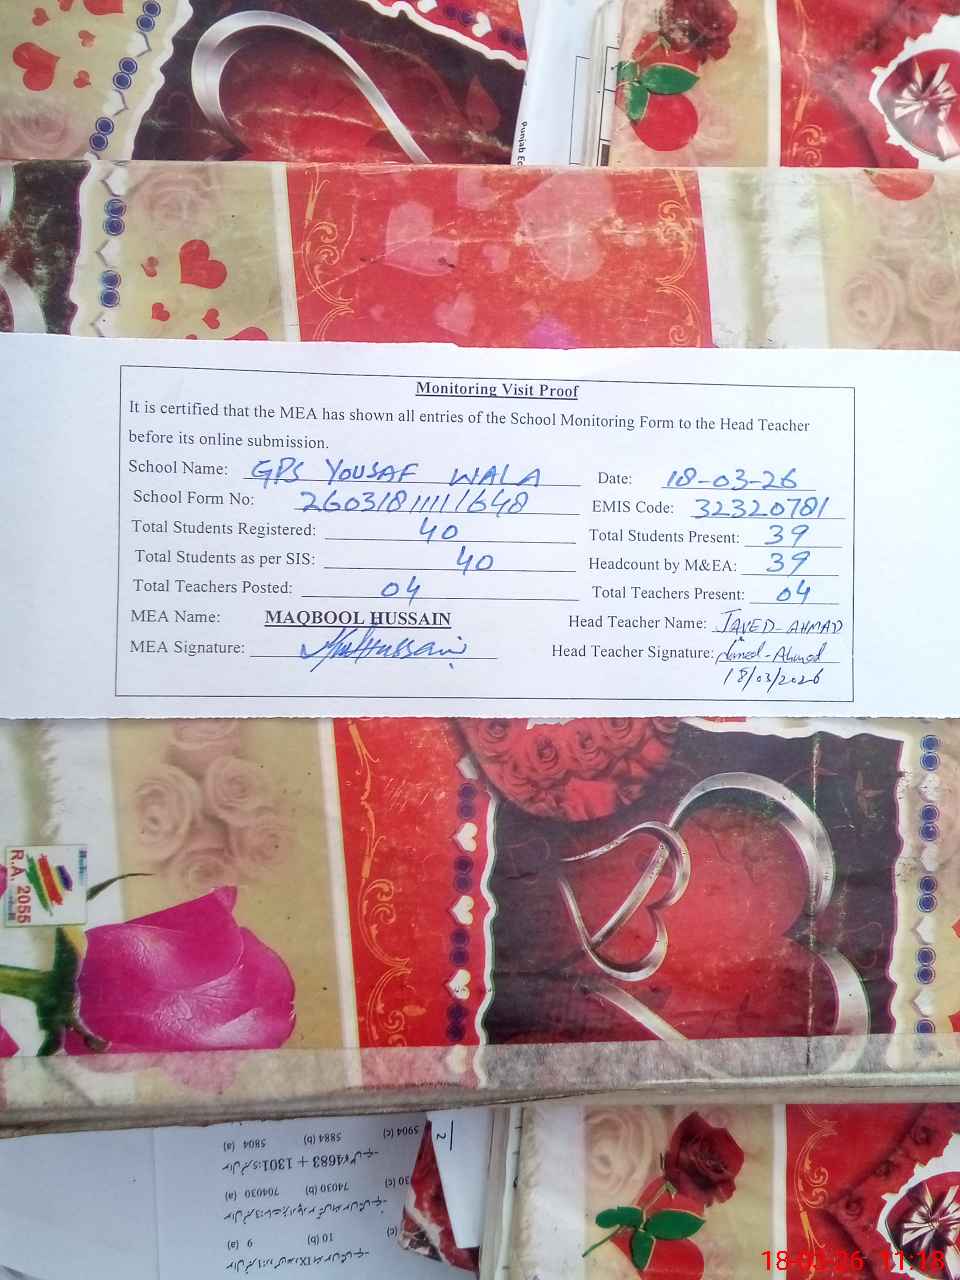 Punjab
Monitoring Visit Proof
It is certified that the MEA has shown all entries of the School Monitoring Form to the Head Teacher
before its online submission.
School Name: GPS YOUSAF WALA Date: 18-03-26
School Form No: EMIS Code: 32320781
Total Students Registered: 40 Total Students Present: 39
Total Students as per SIS: 40 Headcount by M&EA: 39
Total Teachers Posted: 04 Total Teachers Present: 04
MEA Name: MAQBOOL HUSSAIN Head Teacher Name: JAVED-AHMAD
MEA Signature: Hussain Head Teacher Signature: Javed-Ahmad
18/03/2026
R.A. 2055
2
5904 (c) 5884 (b) 5804 (a)
4683 + 1301
30 (c) 74030 (b) 704030 (a)
(c) 10 (b) 9 (a)
18-03-26 11:18